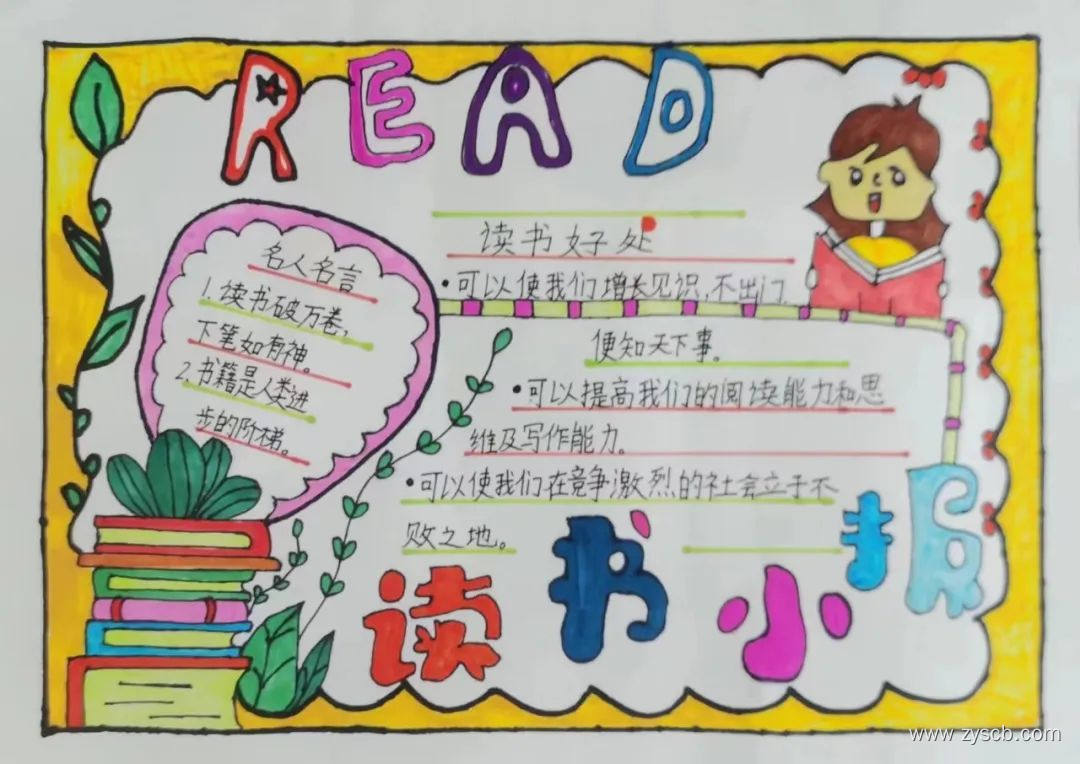 READ
名人名言
1.读书破万卷,
下笔如有神。
2.书籍是人类进
步的阶梯。
读书好处
•可以使我们增长见识,不出门
便知天下事。
•可以提高我们的阅读能力和思
维及写作能力。
•可以使我们在竞争激烈的社会立于不
败之地。
读书小报
www.zyscb.com